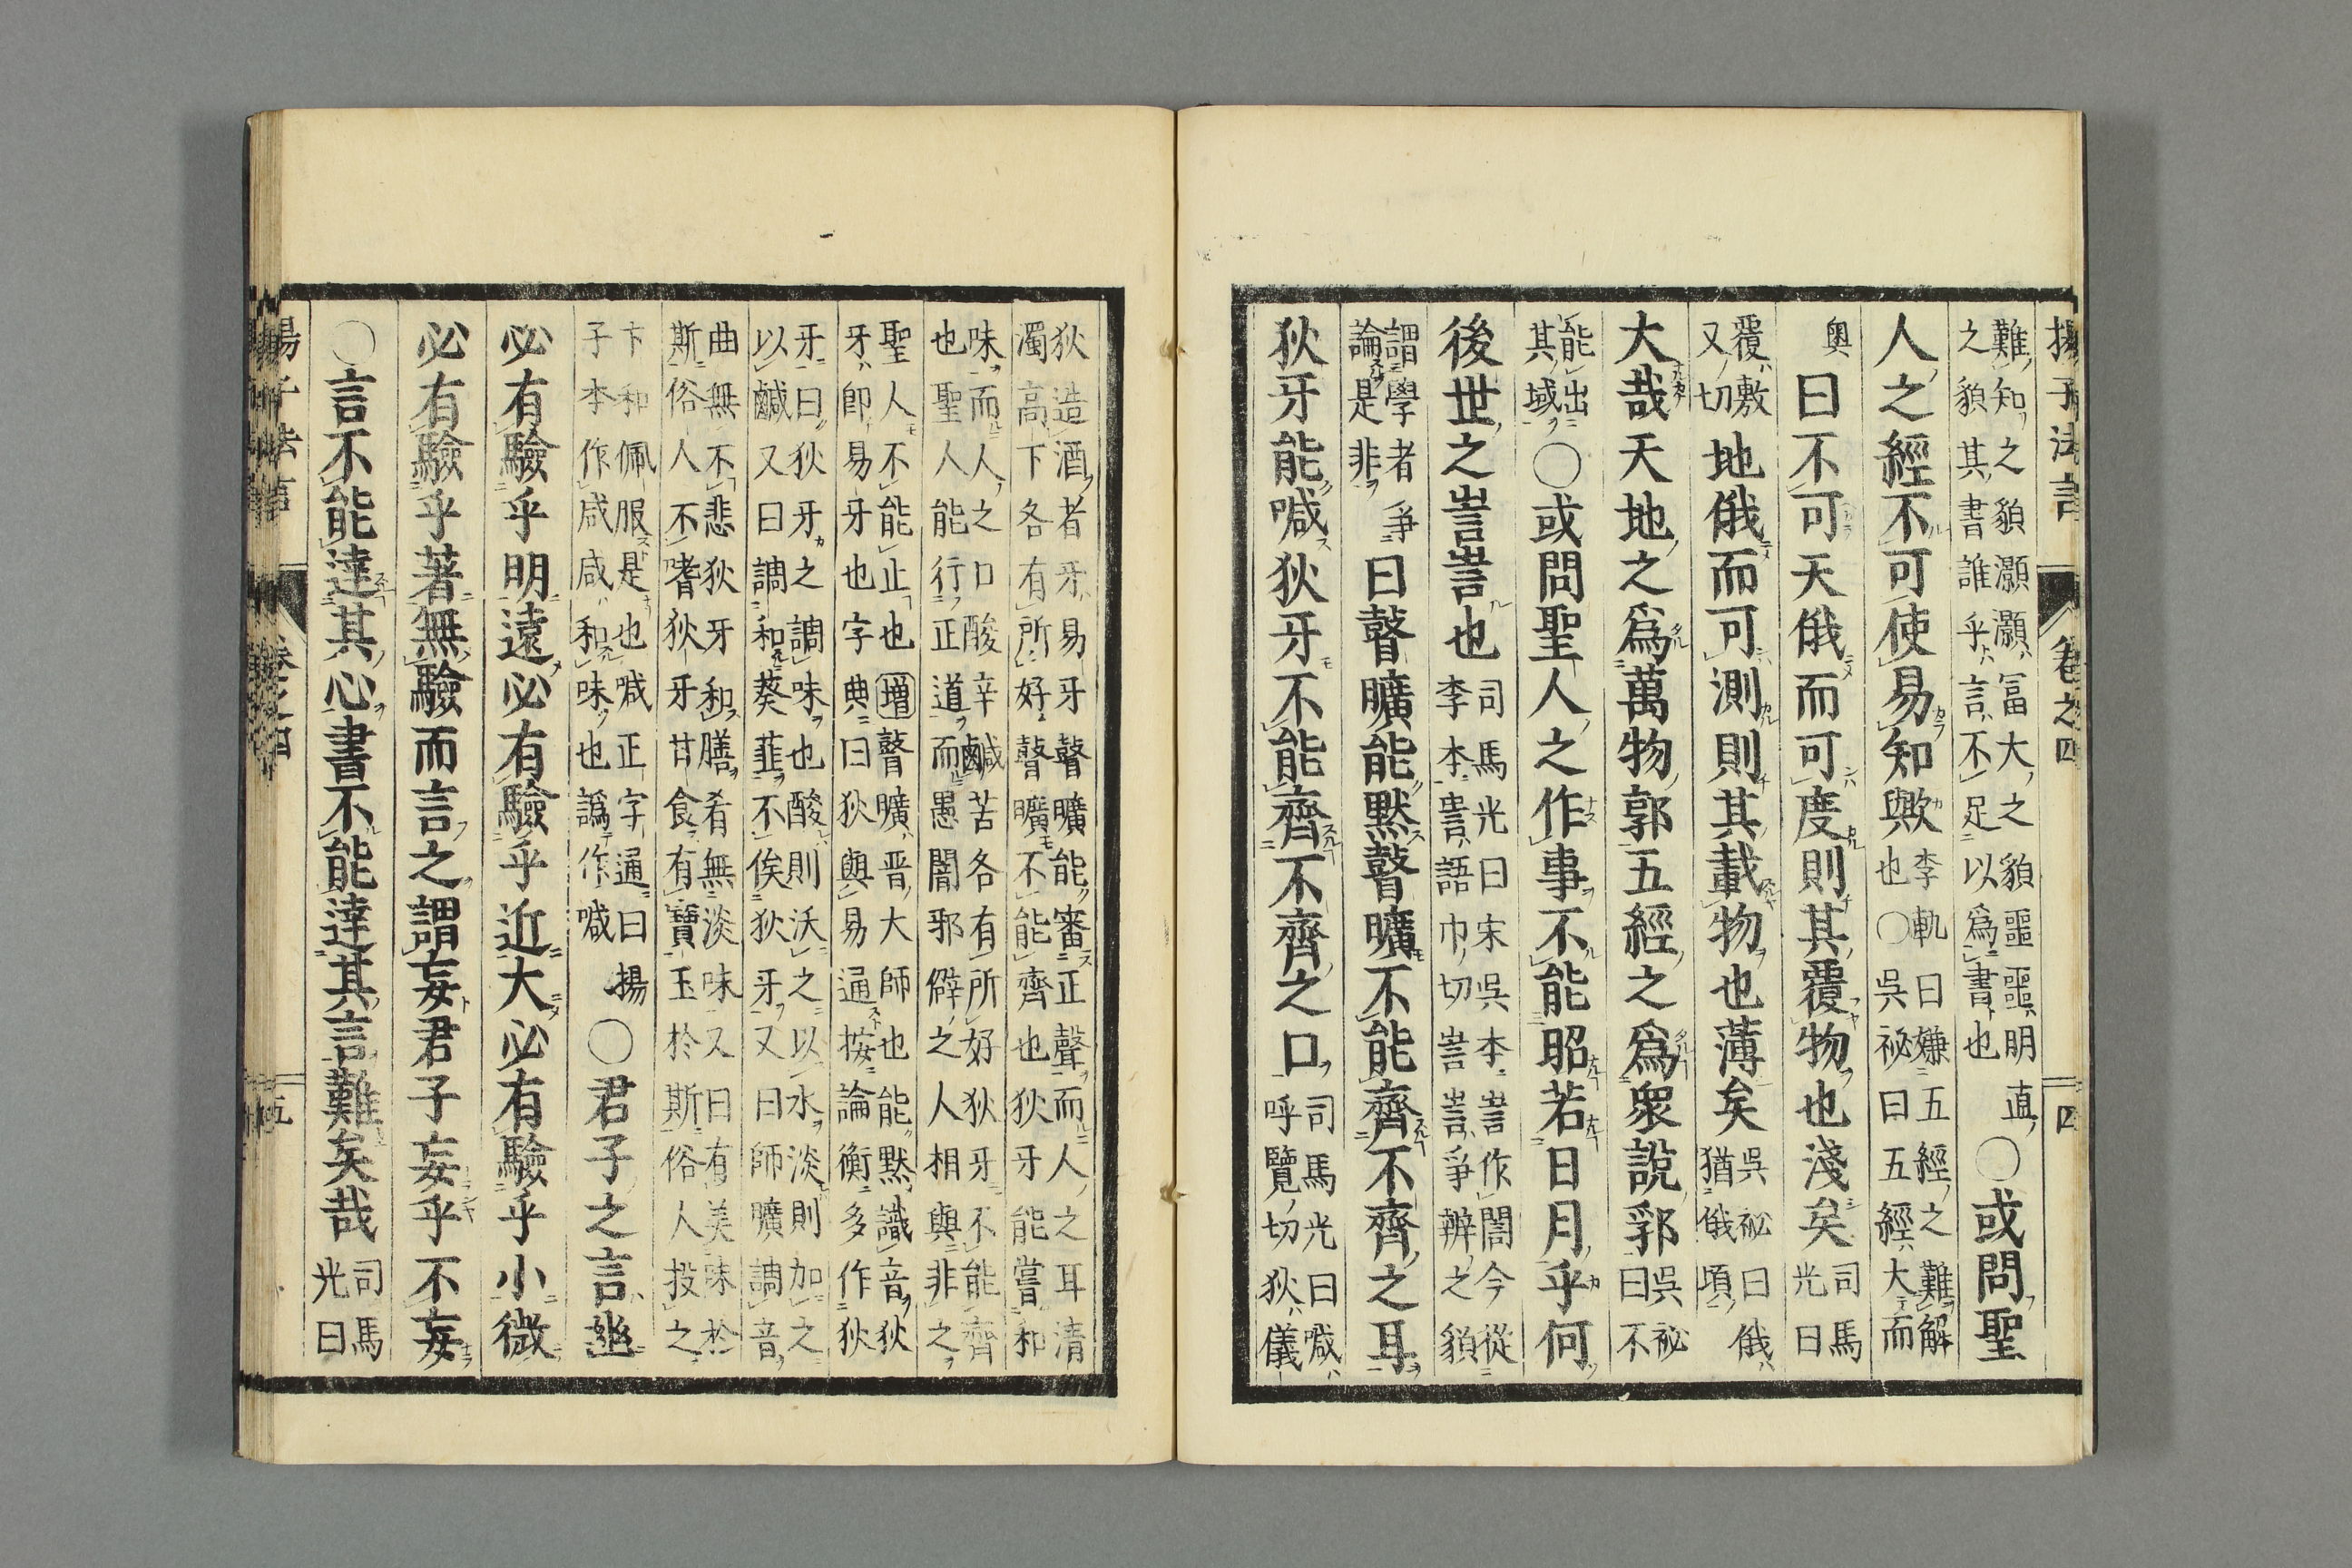 揚子法言 卷之四 四
難知之貌灝灝冨大之貌噩噩明直
之貌其書誰乎言不足以爲書也
○或問聖
人之經不可使易知歟
李軌曰嫌五經之難解
也○吳祕曰五經大而
奧
曰不可天俄而可度則其覆物也淺矣
司馬
光曰
覆敷
又切
地俄而可測則其載物也薄矣
吳祕曰俄
猶俄頃
大哉天地之爲萬物郭五經之爲衆說郛
吳祕
曰不
能出
其域
○或問聖人之作事不能昭若日月乎何
後世之訔訔也
司馬光曰宋吳本訔作誾今從
李本訔語巾切訔訔爭辨之貌
謂學者爭
論是非
曰瞽曠能默瞽曠不能齊不齊之耳
狄牙能喊狄牙不能齊不齊之口
司馬光曰喊
呼覽切狄儀
狄造酒者牙易牙瞽曠能審正聲而人之耳清
濁高下各有所好瞽曠不能齊也狄牙能嘗和
味而人之口酸辛鹹苦各有所好狄牙不能齊
也聖人能行正道而愚闇邪僻之人相與非之
聖人不能止也增瞽曠晋大師也能默識音狄
牙即易牙也字典曰狄與易通按論衡多作狄
牙曰狄牙之調味也酸則沃之以水淡則加之
以鹹又曰調和葵韮不俟狄牙又曰師曠調音
曲無不悲狄牙和膳肴無淡味又曰有美味於
斯俗人不嗜狄牙甘食有寶玉於斯俗人投之
卞和佩服是也喊正字通曰揚
子李作咸咸和味也譌作喊
○君子之言幽
必有驗乎明遠必有驗乎近大必有驗乎小微
必有驗乎著無驗而言之謂妄君子妄乎不妄
○言不能達其心書不能達其言難矣哉
司馬
光曰
卷之四 五